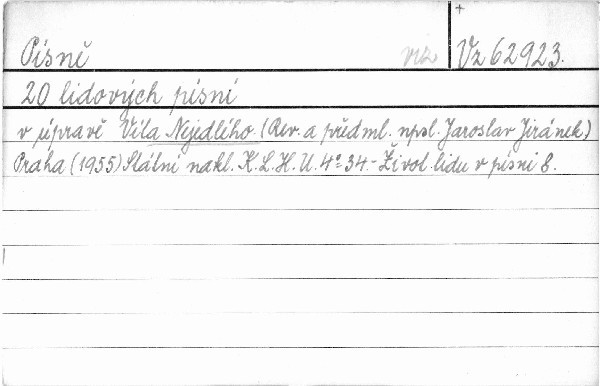 +
Písně viz Vz 62923.
20 lidových písní
v úpravě Víta Nejedlého. (Rev. a předml. napsl. Jaroslav Jiránek.)
Praha (1955) Státní nakl. K.L.H.U. 4º 34.- Život lidu v písni 8.